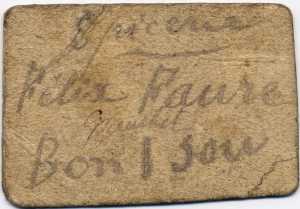 Epicerie
Félix Faure
Bon 1 sou